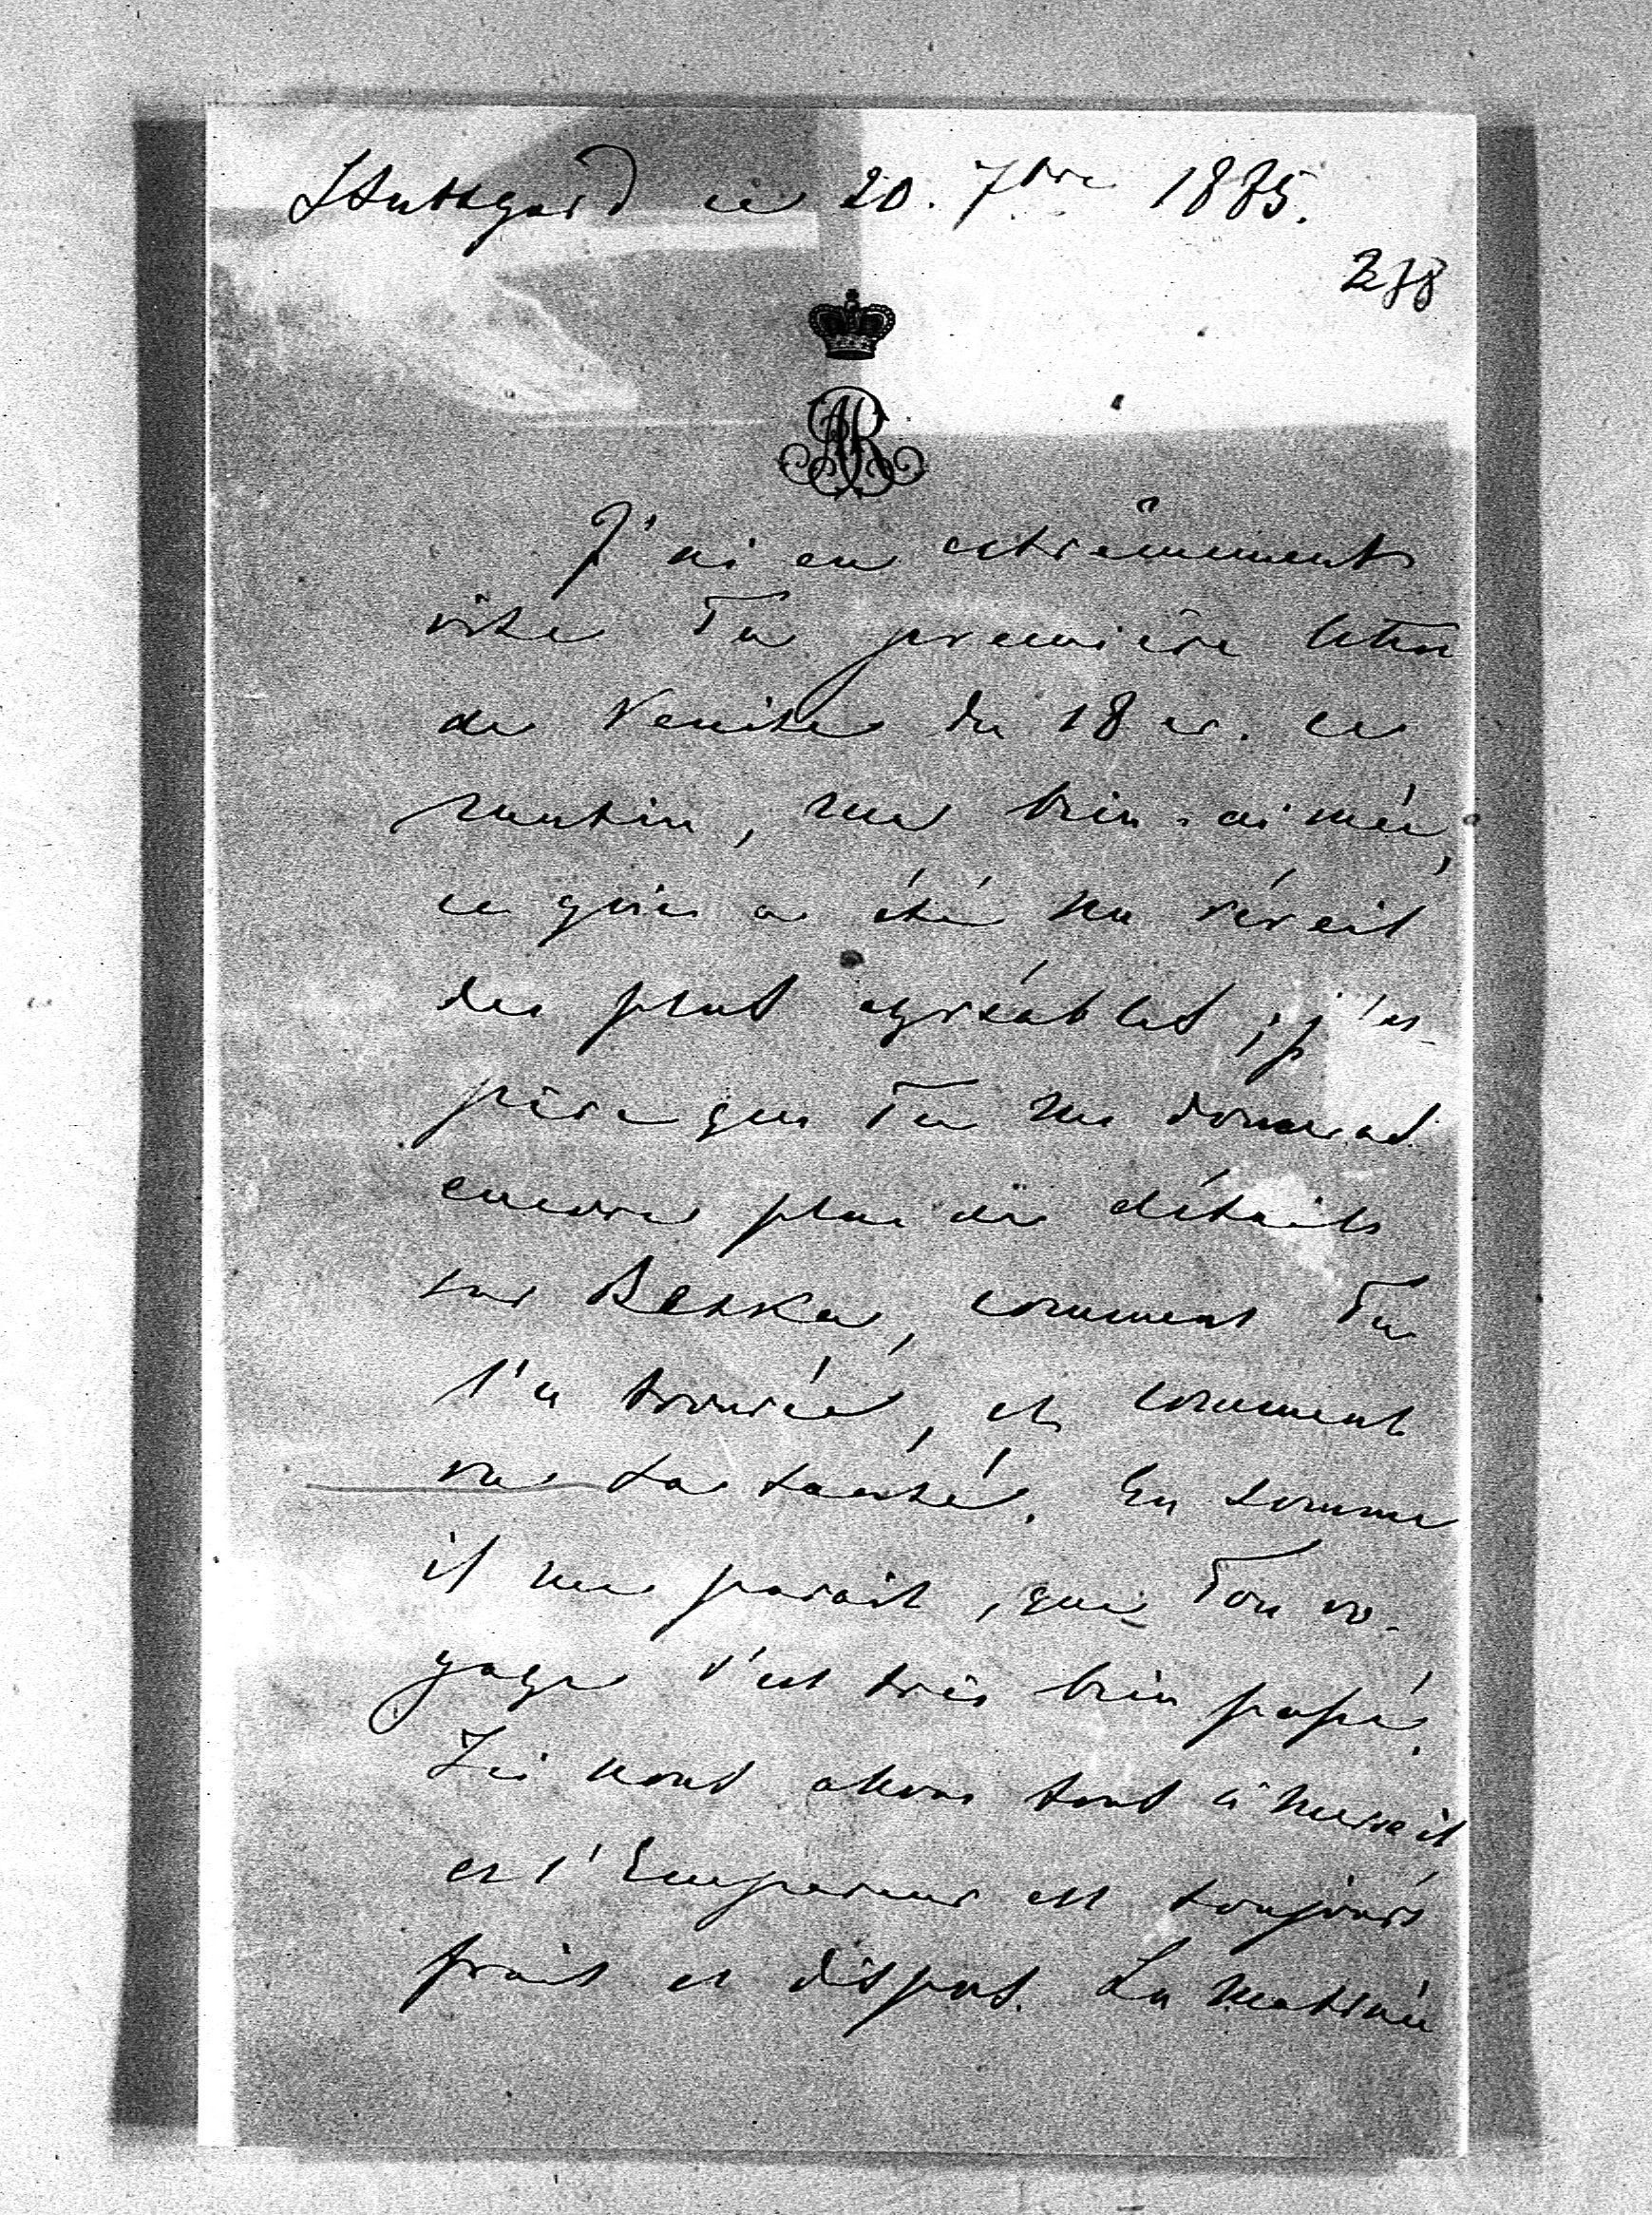 Stuttgard ce 20. 7bre 1885.
278
AR
J'ai eu extrêmement
vite Ta première lettre
de Venise du 18 cr. ce
matin, ma bien-aimée,
ce qui a été un réveil
des plus agréables; j'es-
père que Tu me donneras
encore plus de détails
sur Betka, comment Tu
l'a trouvée, et comment
va sa santé. En somme
il me parait, que Ton vo-
yage s'est très bien passé.
Ici nous allons tous à merveil
et l'Empereur est toujours
frais et dispos. La matinée